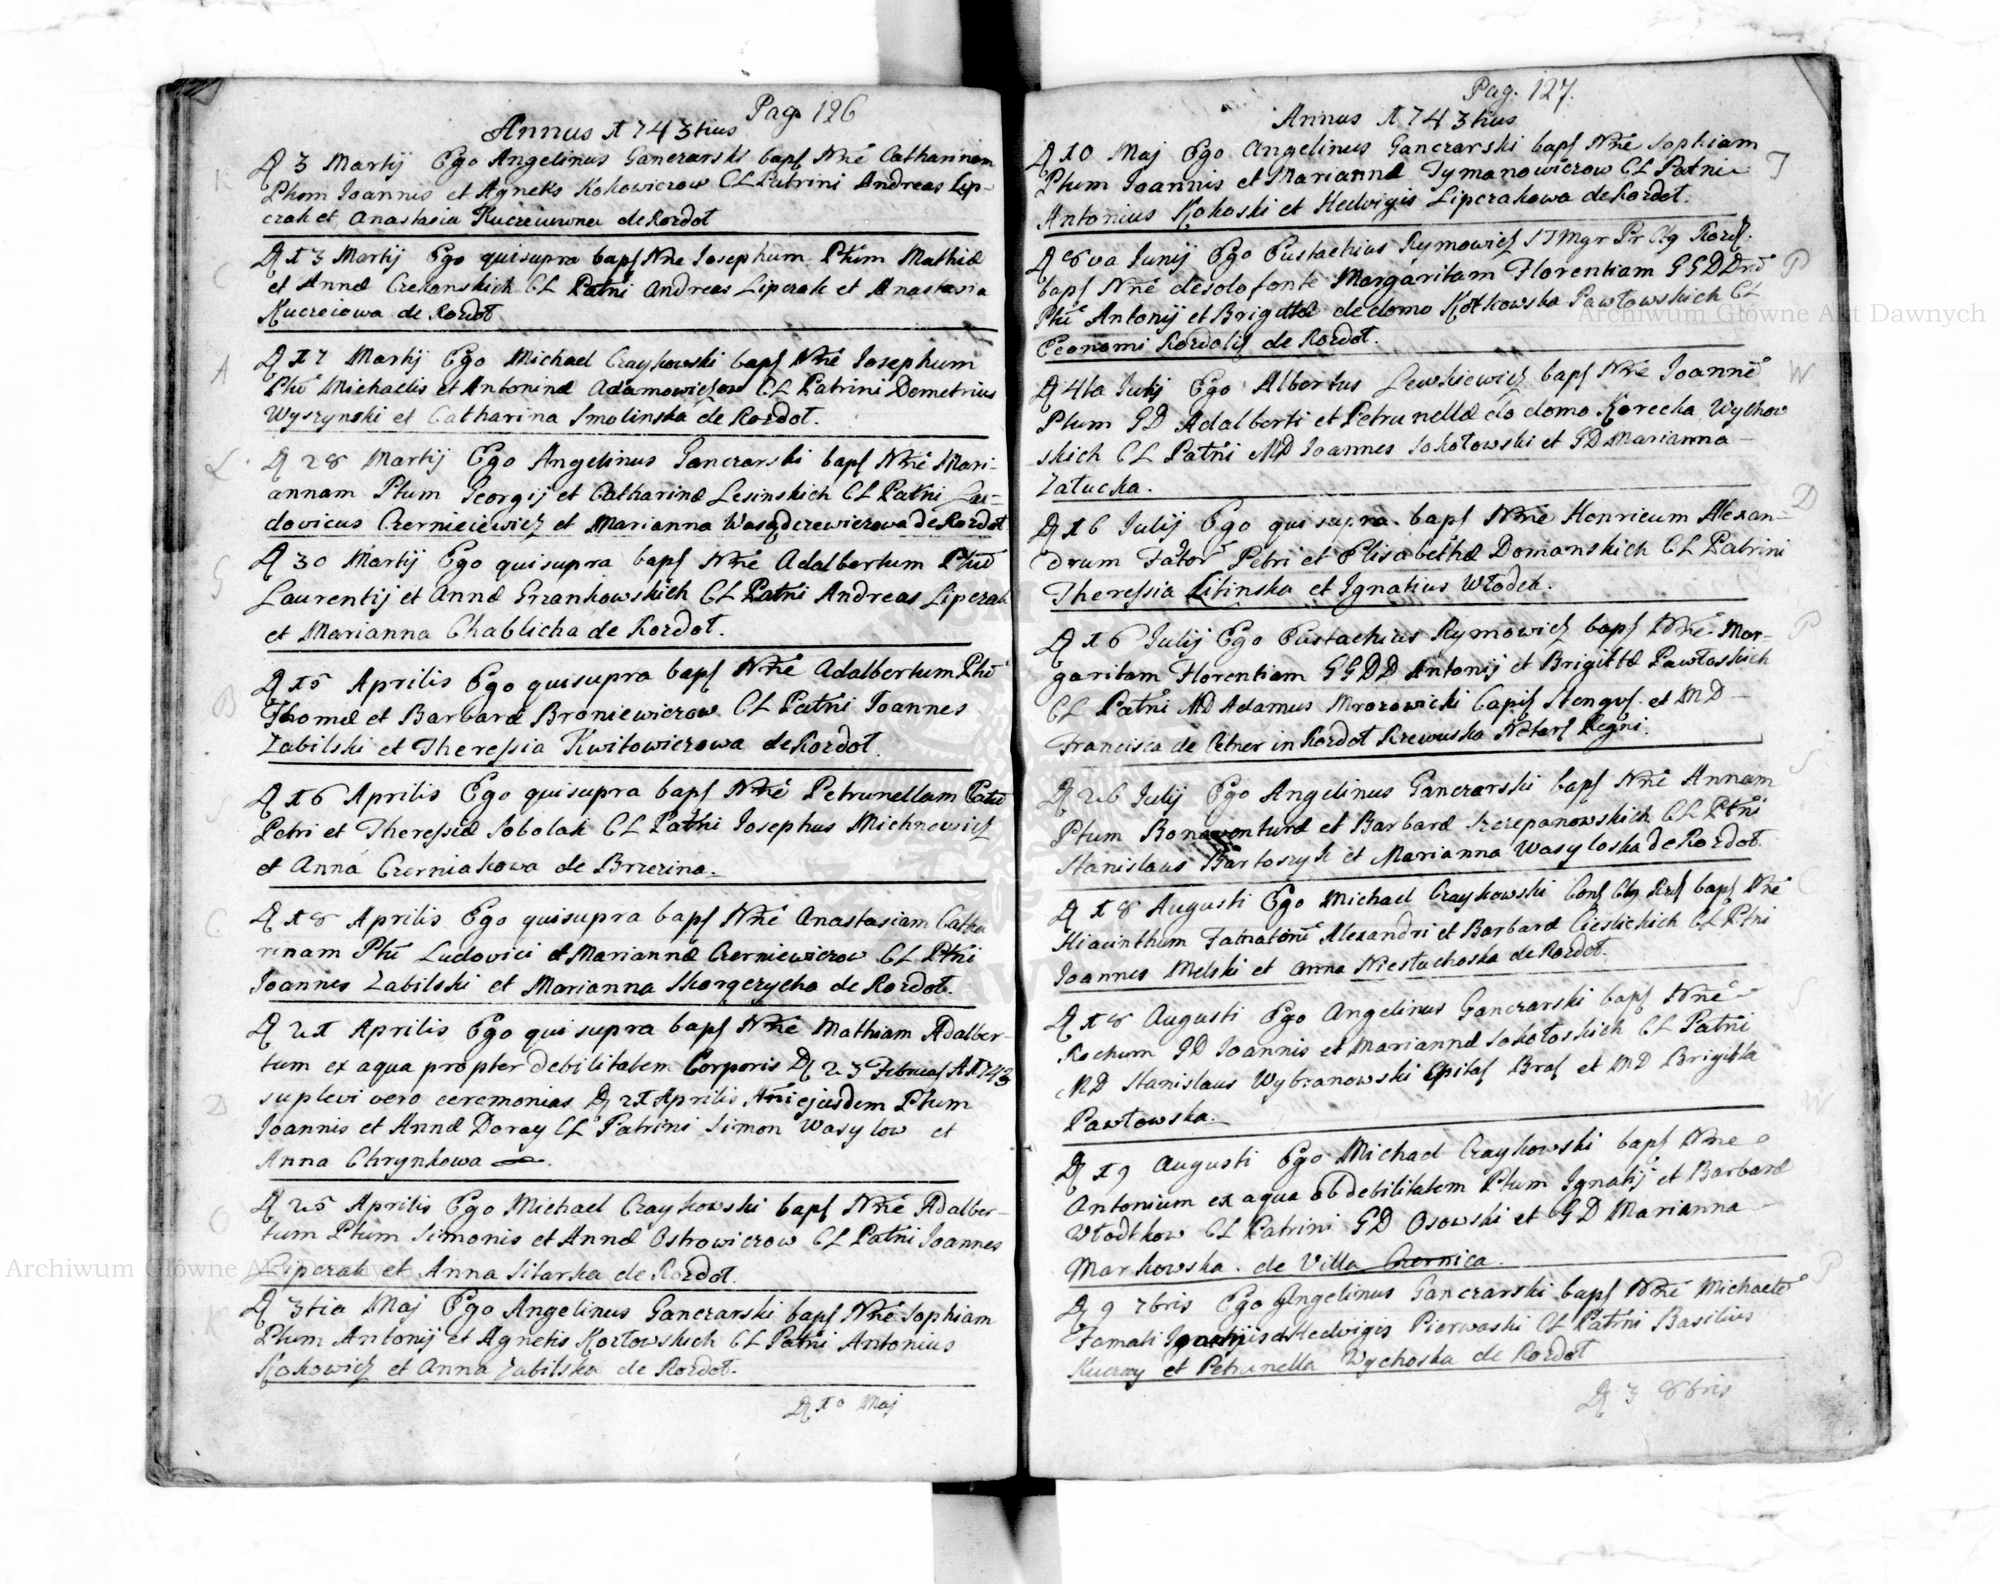 Pag. 126
Annus 1743tius
D 3 Martij Ego Angelinus Ganczarski bapt Nrē Catharinam
Pltum Ioannis et Agnetis Kokowiczow CL Patrini Andreas Lip-
czak et Anastasia de Rozdoł
D 13 Martij Ego qui supra bapt Nrē Iosephum Pltim Mathiæ
et Annæ CL Patni Andreas Liperak et Anastasia
Kucreiowa de Rozdoł
D 17 Martij Ego Michael Craykowski bapt Nrē Iosephum
Pltū Michaelis et Antoninæ Adamowiczow CL Patrini Demetrius
Wyszynski et Catharina Smolinska de Rozdoł.
D 28 Martij Ego Angelinus Ganczarski bapt Nrē Mari-
annam Pltum Georgij et Catharinæ Lesinskich CL Patni Lu-
dovicus et Marianna de Rozdoł
D 30 Martij Ego qui supra bapt Nrē Adalbertum Pltū
Laurentij et Annæ Grzankowskich CL Patni Andreas Liperak
et Marianna Chablicha de Rozdoł.
D 15 Aprilis Ego qui supra bapt Nrē Adalbertum Pltū
Thomæ et Barbaræ Broniewiczow CL Patni Ioannes
Zabilski et Theressia Kwitowiczowa de Rozdoł.
D 16 Aprilis Ego qui supra bapt Nrē Petrunellam
Petri et Theressiæ Sobolak CL Patni Iosephus Michnowicz
et Anna Czerniakowa de Brzezina.
D 18 Aprilis Ego qui supra bapt Nrē Anastasiam Catha
rinam Pltū Ludovici et Mariannæ Czerniewiczow CL Ptni
Ioannes Zabilski et Marianna de Rozdoł.
D 21 Aprilis Ego qui supra bapt Nrē Mathiam Adalber-
tum ex aqua propter debilitatem Corporis D 23 Februa A 1743
suplevi vero ceremonias D 21 Aprilis Ani ejusdem Pltum
Ioannis et Annæ Doray CL Patrini Simon Wasylow et
Anna Chrynkowa
D 25 Aprilis Ego Michael Craykowski bapt Nrē Adalber-
tum Pltum Simonis et Annæ Ostrowiczow CL Patni Ioannes
Liperak et Anna Sitarska de Rozdoł.
D 3tia Maj Ego Angelinus Ganczarski bapt Nrē Sophiam
Pltum Antonij et Agnetis Kozłowskich CL Patni Antonius
Kokowicz et Anna Zabilska de Rozdoł.
D 10 Maj
Pag. 127.
Annus 1743tius
D 10 Maj Ego Angelinus Ganczarski bapt Nrē Sophiam
Pltum Ioannis et Mariannæ Tymanowiczow CL Patni
Antonius Kokoski et Hedvigis Liperakowa de Rozdoł.
D 6va Iunij Ego Eustachius Rymowicz
bapt Nrē de solo fonte Margaritam Florentiam GGDD
Pltū Antonij et Brigittæ de domo Kotkowska Pawłowskich CL
Economi de Rozdoł.
D 4ta Iulij Ego Albertus Lewkiewicz bapt Nrē Ioannē
Pltum GD Adalberti et Petrunellæ do domo Korecka Wychow
skich CL Patni MD Ioannes Sokołowski et GD Marianna
Załucka.
D 16 Iulij Ego qui supra bapt Nrē Henricum Alexan-
drum Petri et Elisabethæ Domanskich CL Patrini
Theressia Litinska et Ignatius Włodek.
D 16 Iulij Ego Eustachius Rymowicz bapt Nrē Mar-
garitam Florentiam GGDD Antonij et Brigittæ Pawłoskich
CL Patni MD Adamus Mrozowicki et MD
Francisca de Cetner in Rozdoł Rzewuska Regni.
D 26 Iulij Ego Angelinus Ganczarski bapt Nrē Annam
Pltum Bonaventuræ et Barbaræ Szczepanowskich CL Ptni
Stanislaus Bartoszyk et Marianna Wasyloska de Rozdoł.
D 18 Augusti Ego Michael Craykowski bapt Nrē
Hiacinthum Alexandri et Barbaræ Cieslickich CL Ptni
Ioannes Melski et Anna Niestuchoska de Rozdoł.
D 18 Augusti Ego Angelinus Ganczarski bapt Nrē
Rochum GD Ioannis et Mariannæ Sokołoskich CL Patni
MD Stanislaus Wybranowski et MD Brigitta
Pawłowska.
D 19 Augusti Ego Michael Craykowski bapt Nrē
Antonium ex aqua ob debilitatem Pltum Ignatij et Barbaræ
Włodkow CL Patrini GD Osowski et GD Marianna
Markowska. de Villa Czernica.
D 9 7bris Ego Angelinus Ganczarski bapt Nrē Michaelē
Ignatij et Hedvigis Pierwoski CL Patni Basilius
et Petrunella Wychoska de Rozdoł
D 3 8bris
K
C
A
L
G
B
S
C
D
O
K
T
P
W
D
P
S
C
S
W
P
Archiwum Główne Akt Dawnych
Archiwum Główne Akt Dawnych